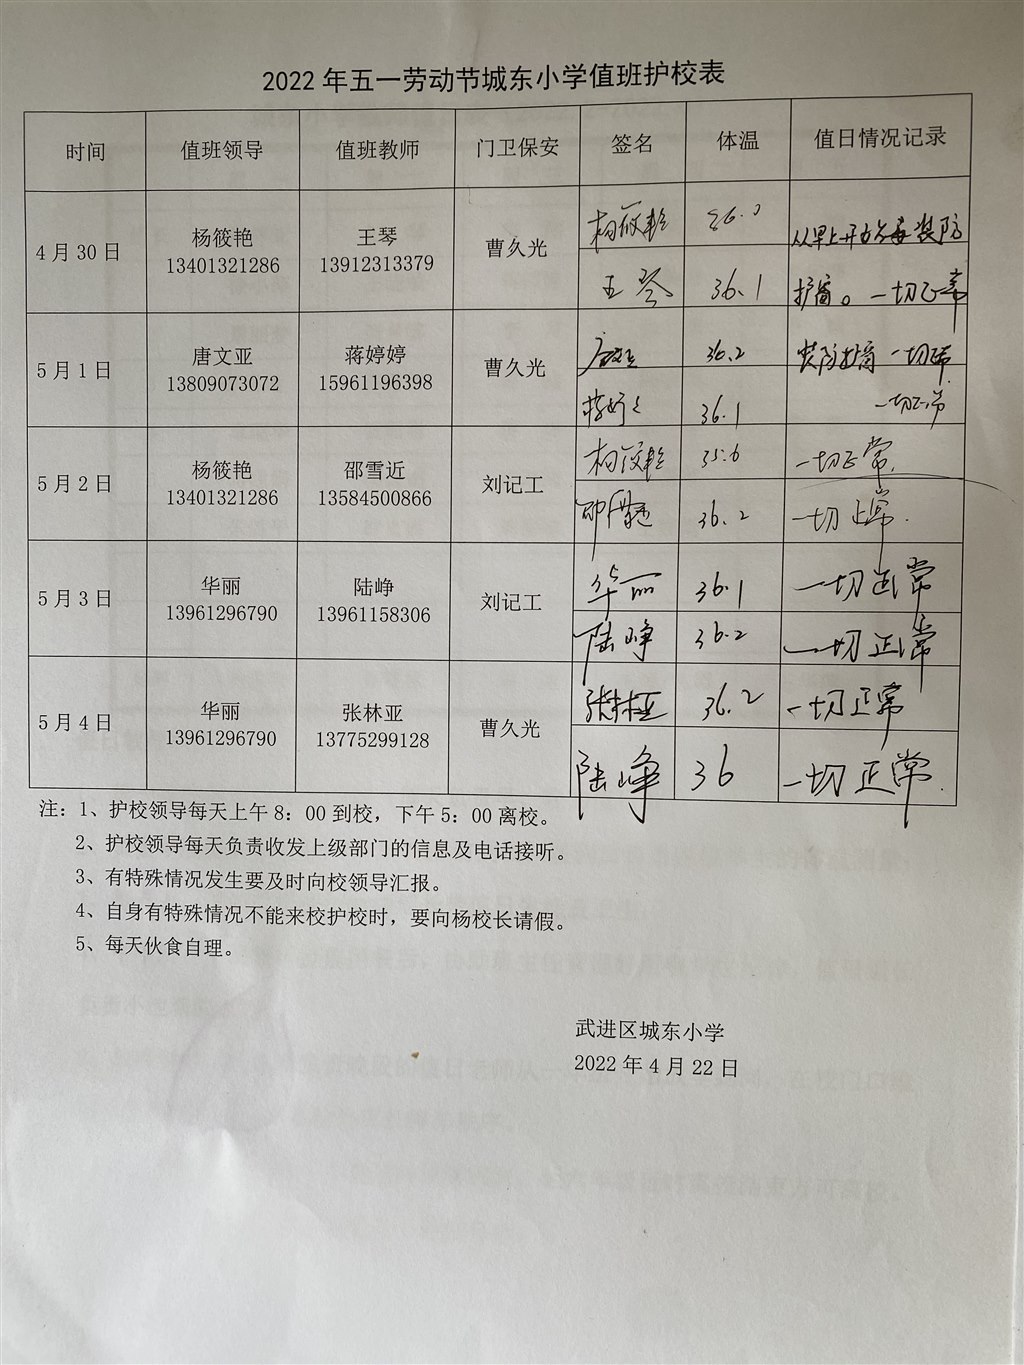 2022年五一劳动节城东小学值班护校表
时间 值班领导 值班教师 门卫保安 签名 体温 值日情况记录
4月30日 杨筱艳 王琴 曹久光 杨筱艳
13401321286 13912313379 王琴 36.1 护窗。一切正常
从早上开始 装防
5月1日 唐文亚 蒋婷婷 曹久光 唐文亚 36.2 装防护窗 一切正常
13809073072 15961196398 蒋婷婷 36.1 一切正常
5月2日 杨筱艳 邵雪近 刘记工 杨筱艳 35.6 一切正常.
13401321286 13584500866 邵雪近 36.2 一切正常.
5月3日 华丽 陆峥 刘记工 华丽 36.1 一切正常
13961296790 13961158306 陆峥 36.2 一切正常
5月4日 华丽 张林亚 曹久光 张林亚 36.2 一切正常
13961296790 13775299128 陆峥 36 一切正常.
注：1、护校领导每天上午8：00到校，下午5：00离校。
2、护校领导每天负责收发上级部门的信息及电话接听。
3、有特殊情况发生要及时向校领导汇报。
4、自身有特殊情况不能来校护校时，要向杨校长请假。
5、每天伙食自理。
武进区城东小学
2022年4月22日